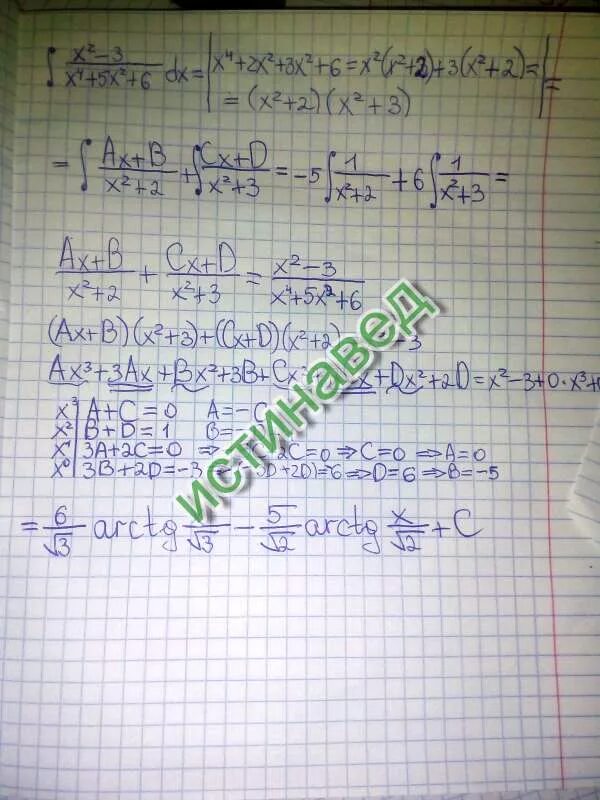 ∫ (x²-3)/(x⁴+5x²+6) dx = | x⁴+2x²+3x²+6 = x²(x²+2)+3(x²+2) = | =
= (x²+2)(x²+3)
= ∫ (Ax+B)/(x²+2) + ∫ (Cx+D)/(x²+3) = -5 ∫ 1/(x²+2) + 6 ∫ 1/(x²+3) =
(Ax+B)/(x²+2) + (Cx+D)/(x²+3) = (x²-3)/(x⁴+5x²+6)
(Ax+B)(x²+3)+(Cx+D)(x²+2) -3
Ax³+3Ax+Bx²+3B+Cx x+Dx²+2D = x²-3+0·x³+0
x³ | A+C=0 A=-C
x² | B+D=1 B=
x¹ | 3A+2C=0 ⇒ 2C=0 ⇒ C=0 ⇒ A=0
x⁰ | 3B+2D=-3 D+2D)=-6 ⇒ D=6 ⇒ B=-5
= 6/√3 arctg /√3 - 5/√2 arctg x/√2 + C
истинавед